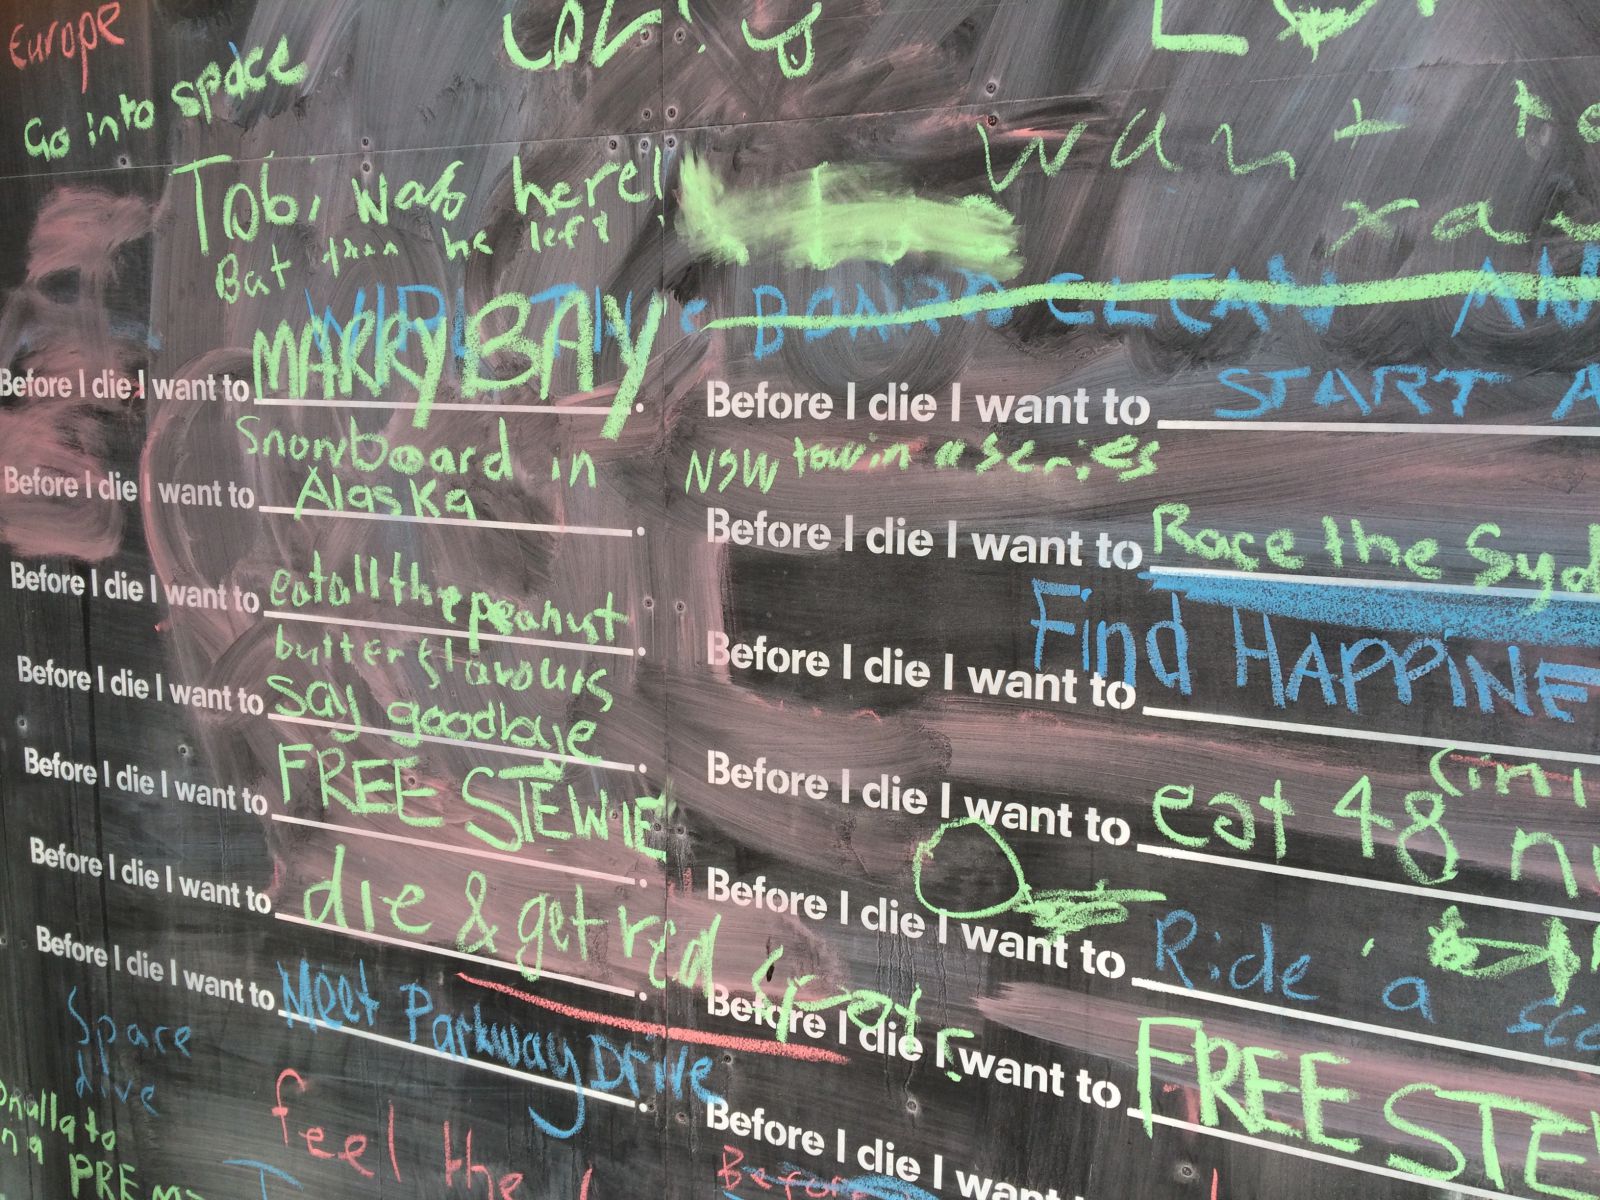 Europe
Go into space
LOL!
Tobi was here!
But then he left!
want to
WIPE THE BOARD CLEAN AN
Before I die I want to MARRY BAY.
Before I die I want to Snowboard in Alaska.
Before I die I want to eat all the peanut butter flavours.
Before I die I want to say goodbye.
Before I die I want to FREE STEWIE.
Before I die I want to die & get rid
Before I die I want to Meet Parkway Drive.
Space
dive
feel the
to
na PREM
Before I die I want to START A
NSW to win a series
Before I die I want to Race the Syd
Before I die I want to Find HAPPINE
Before I die I want to eat 48
Before I die I want to Ride a sco
Before I die I want to FREE STE
Before I die I want